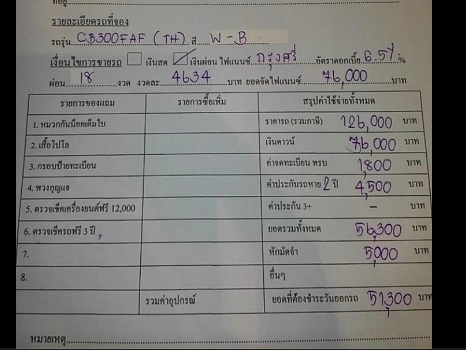 รายละเอียดรถที่จอง
รถรุ่น CB300FAF (TH) สี W-B
เงื่อนไขการขายรถ เงินสด เงินผ่อน ไฟแนนซ์ กรุงศรี อัตราดอกเบี้ย 6.5 %
ผ่อน 18 งวด งวดละ 4634 บาท ยอดจัดไฟแนนซ์ 76,000 บาท
รายการของแถม รายการซื้อเพิ่ม สรุปค่าใช้จ่ายทั้งหมด
1. หมวกกันน็อคเต็มใบ ราคารถ (รวมภาษี) 126,000 บาท
2. เสื้อโปโล เงินดาวน์ 76,000 บาท
3. กรอบป้ายทะเบียน ค่าจดทะเบียน พรบ 1,800 บาท
4. พวงกุญแจ ค่าประกันรถหาย 2 ปี 4,500 บาท
5. ตรวจเช็คเครื่องยนต์ฟรี 12,000 ค่าประกัน 3+ - บาท
6. ตรวจเช็ครถฟรี 3 ปี ยอดรวมทั้งหมด 56,300 บาท
7. หักมัดจำ 5,000 บาท
8. อื่นๆ
รวมค่าอุปกรณ์ ยอดที่ต้องชำระวันออกรถ 51,300 บาท
หมายเหตุ